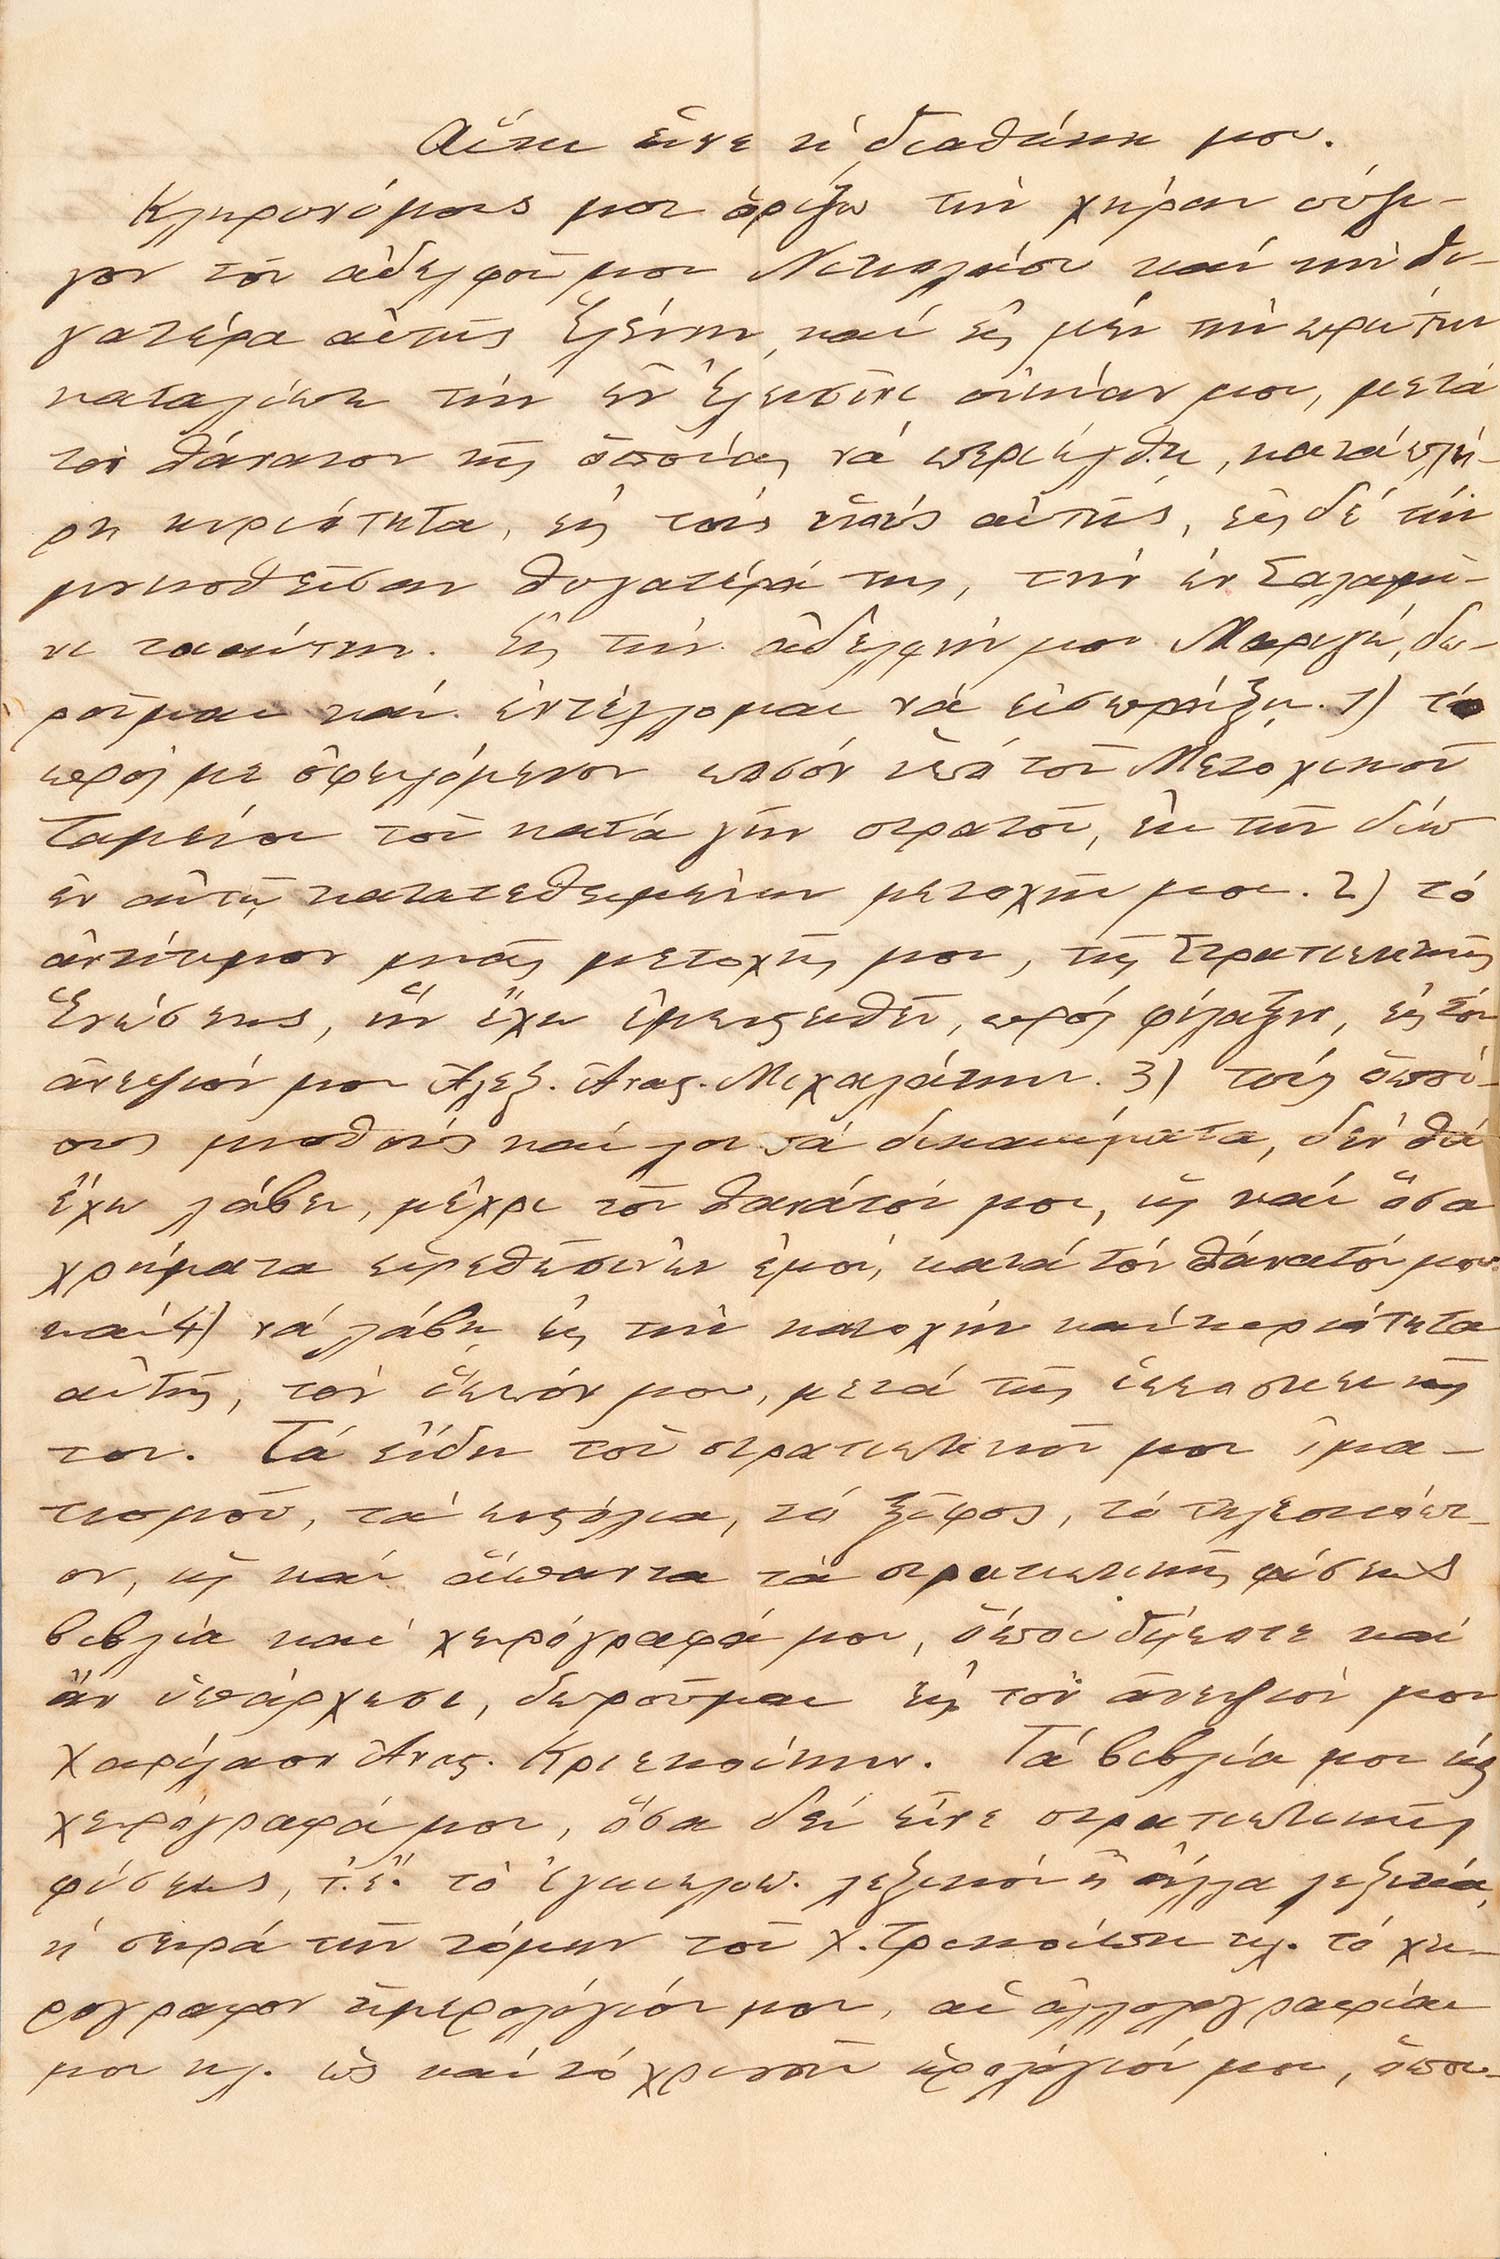 Αὕτη εἶνε ἡ διαθήκη μου.
Κληρονόμους μου ὁρίζω τὴν χήραν σύζυ-
γον τοῦ ἀδελφοῦ μου Νικολάου καί τὴν θυ-
γατέρα αὐτῆς Ἑλένην, καί εἰς μέν τὴν πρώτην
καταλείπω τὴν ἐν Ἐλευσῖνι οἰκίαν μου, μετά
τον θάνατον τῆς ὁποίας νά περιέλθῃ, κατά πλή-
ρη κυριότητα, εἰς τούς υἱούς αὐτῆς, εἰς δέ τήν
μνησθεῖσαν θυγατέρα της, τήν ἐν Σαλαμῖ-
νι τοιαύτην. Εἰς τήν ἀδελφήν μου Μαριγώ, δω-
ροῦμαι καί ἐντέλλομαι νά εἰσπράξῃ. 1) τό
πρός με ὀφειλόμενον ποσόν ὑπό τοῦ Μετοχικοῦ
Ταμείου τοῦ κατά γῆν στρατοῦ, ἐκ τῶν δύω
ἐν αὐτῷ κατατεθειμένων μετοχῶν μου. 2) τό
ἀντίτιμον μιᾶς μετοχῆς μου, τῆς Στρατιωτικῆς
Ἑνώσεως, ἥν ἔχω ἐμπιστευθεῖ, πρός φύλαξιν, εἰς τόν
ἀνεψιόν μου Ἀλεξ. Ἀνας. Μιχαλάκην. 3) τούς ὁποί-
ους μισθούς καί λοιπά δικαιώματα, δέν θά
ἔχω λάβει, μέχρι τοῦ θανάτου μου, ὡς καί ὅσα
χρήματα εὑρεθῶσιν ἐν ἐμοί, κατά τόν θάνατόν μου
καί 4) νά λάβῃ εἰς τήν κατοχήν καί κυριότητα
αὐτῆς, τόν ἵππόν μου, μετά τῆς ἱπποσκευῆς
του. Τά εἴδη τοῦ στρατιωτικοῦ μου ἱμα-
τισμοῦ, τά πιστόλια, τό ξῖφος, τό τηλεσκόπι-
ον, ὡς καί ἅπαντα τά στρατιωτικῆς φύσεως
βιβλία καί χειρόγραφά μου, ὁπουδήποτε καί
ἄν ὑπάρχωσι, δωροῦμαι εἰς τόν ἀνεψιόν μου
Χαρίλαον Ἀνας. Κριεκούκην. Τά βιβλία μου ὡς
χειρόγραφά μου, ὅσα δέν εἶνε στρατιωτικῆς
φύσεως, τ.ἔ. τό ἐγκυκλοπ. λεξικόν ἤ ἄλλα λεξικά,
ἡ σειρά τῶν τόμων τοῦ Χ. Τρικούπη κλ. τό χει-
ρόγραφον ἡμερολόγιόν μου, αἱ ἀλληλογραφίαι
μου κλ. ὡς καί τό χρυσοῦν ὡρολόγιόν μου, ὅπου-